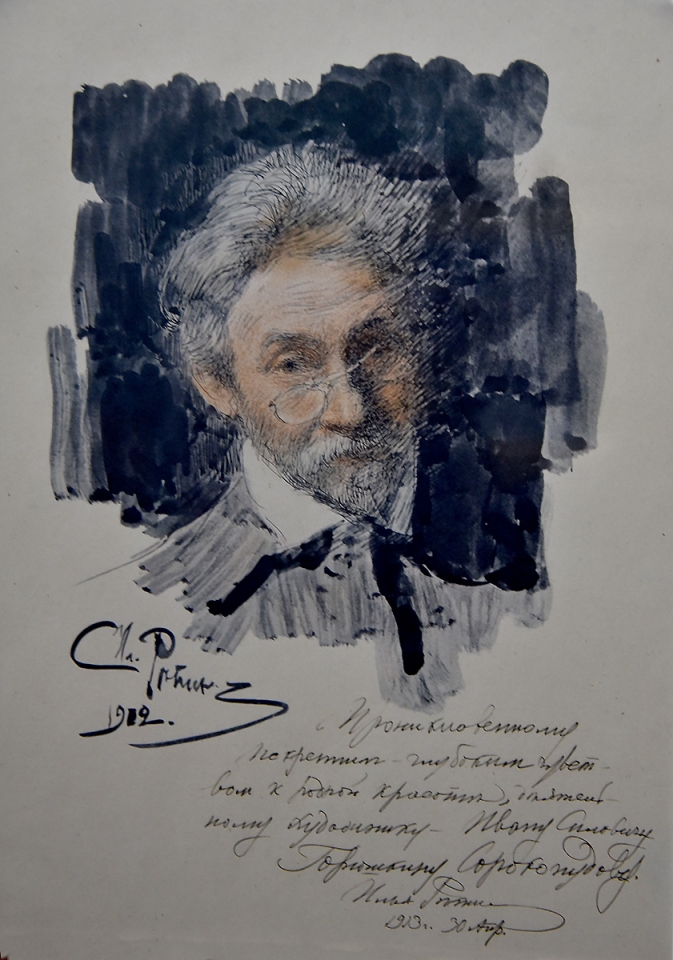 Ил. Рѣпин
1912.
Проникновенному
искренним - глубоким чувст-
вом к родной красотѣ,
ному художнику - Ивану Силовичу
Горюшкину Сорокопудову.
Илья Рѣпин
1913 г. 30 Апр.